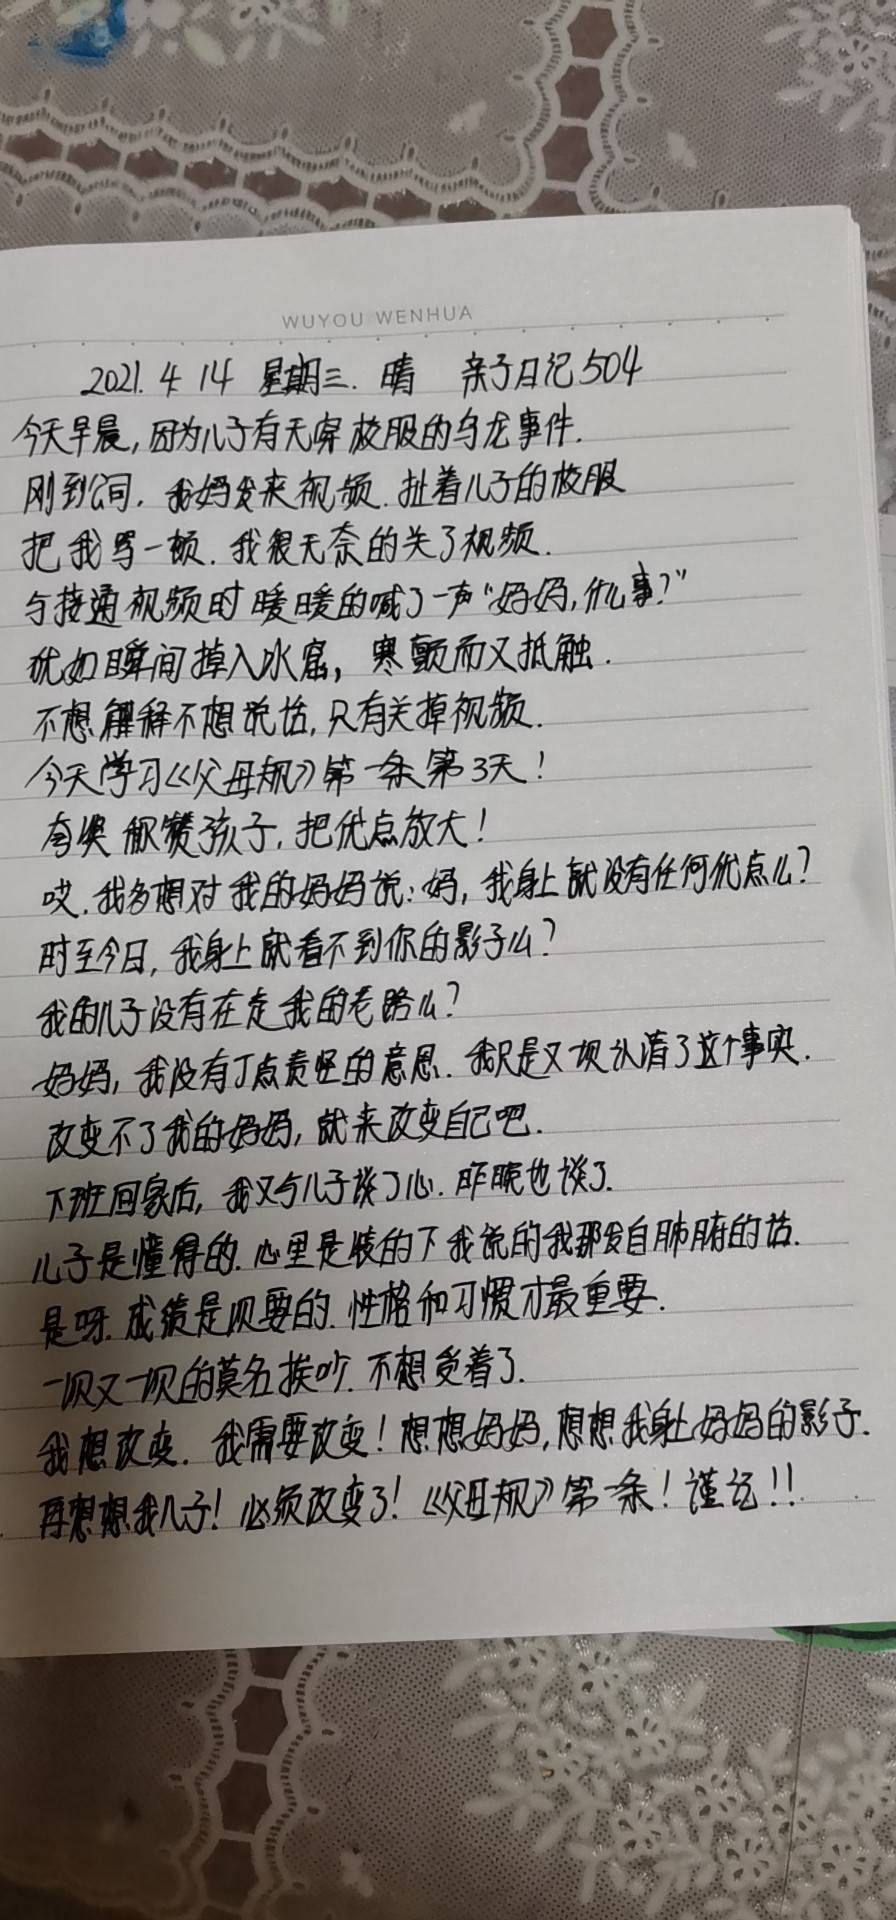 WUYOU WENHUA
2021. 4. 14 星期三. 晴 亲子日记504
今天早晨,因为儿子有无穿校服的乌龙事件.
刚到公司,我妈发来视频.扯着儿子的校服
把我骂一顿.我很无奈的关了视频.
与接通视频时暖暖的喊了一声“妈妈,什么事?”
犹如瞬间掉入冰窟,寒颤而又抵触.
不想解释不想说话,只有关掉视频.
今天学习《父母规》第一条第3天!
夸奖 称赞孩子,把优点放大!
哎.我多想对我的妈妈说:妈,我身上就没有任何优点么?
时至今日,我身上就看不到你的影子么?
我的儿子没有在走我的老路么?
妈妈,我没有丁点责怪的意思.我只是又一次认清了这个事实.
改变不了我的妈妈,就来改变自己吧.
下班回家后,我又与儿子谈了心.昨晚也谈了.
儿子是懂得的.心里是装的下我说的我那发自肺腑的话.
是呀.成绩是次要的.性格和习惯才最重要.
一次又一次的莫名挨吵.不想受着了.
我想改变.我需要改变!想想妈妈,想想我身上妈妈的影子.
再想想我儿子!必须改变了!《父母规》第一条!谨记!!